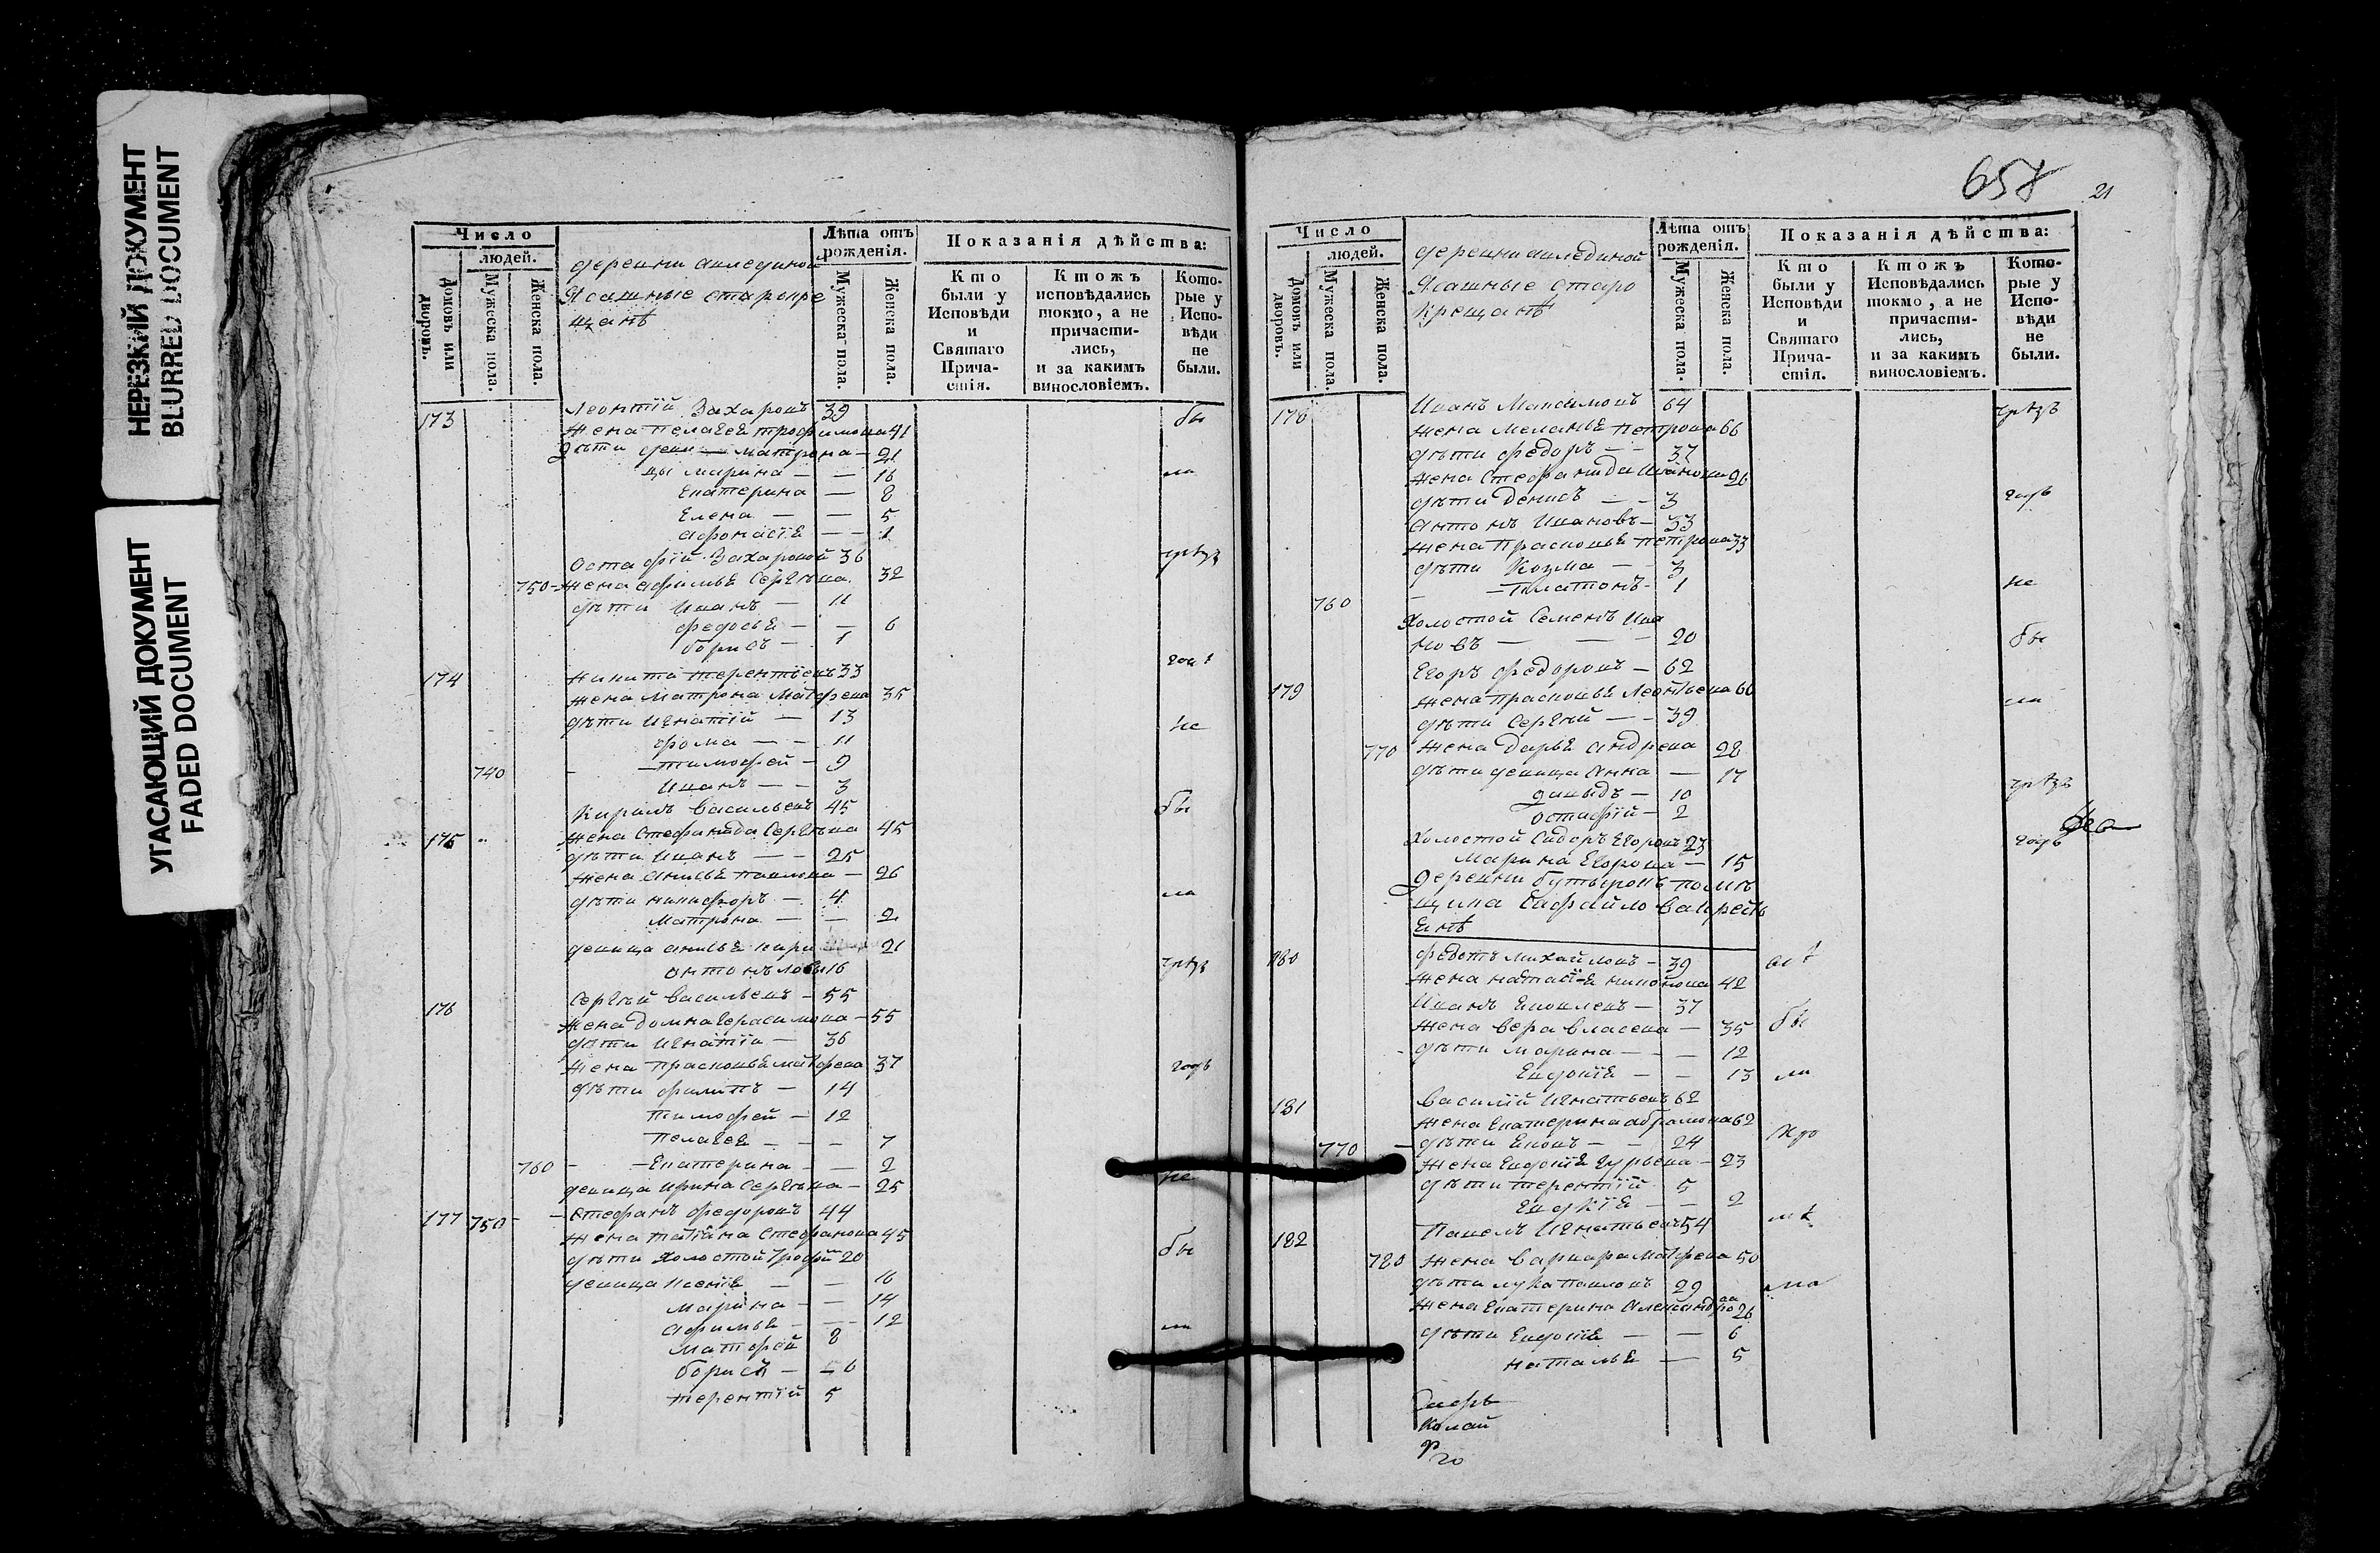 НЕРЕЗКИЙ ДОКУМЕНТ
BLURRED DOCUMENT
УГАСАЮЩИЙ ДОКУМЕНТ
FADED DOCUMENT
Число
людей.
Домовъ или дворовъ.
Мужеска пола.
Женска пола.
деревни
Ясашные старокре
щанѣ
Лѣта отъ рожденія.
Мужеска пола.
Женска пола.
Показанія дѣйства:
Кто были у Исповѣди и Святаго Прича-стія.
Ктожъ исповѣдались токмо, а не причасти-лись, и за какимъ винословіемъ.
Кото-рые у Испо-вѣди не были.
173 Леонтїй Захаровъ 39 бы
жена Пелагея трофимова 41
дѣти деви — матрона — 21
цы марина — — 16 ли
Екатерина — 8
Елена — — 5
— — 1
Остафїй Захаровой 36 чрезъ
750 — жена афимья Сергѣва 32
дѣти Иванъ — 11
федосья — — 6
борисъ — 1
174 Никита терентїевъ 33
жена матрона матфева 35
дѣти Игнатїй — 13 не
фома — — 11
740 — тимофей — 9
Иванъ — — 3
Кирилъ васильевъ 45 бы
175 жена Стефанида Сергѣва 45
дѣти Иванъ — — 25
жена анисья павлова — 26
дѣти никифоръ — 4 ли
матрона — — 2
девица анисья кири 21
16 чрезъ
176 Сергѣй васильевъ — 55
жена Домна Герасимова — 55
дѣти Игнатїи — 36
жена прасковья матфева 37 годъ
дѣти филипъ — 14
тимофей — 12
пелагея — — — 7
760 — Екатерина — — 2 не
девица Ирина Сергѣва — 25
177 750 — Стефанъ федоровъ 44
жена татїана Стефанова 45 бы
дѣти холостой 20
девица ксенїя — — 16
марина — — 14
афимья — — 12 ли
матфей 8
борисъ — — 6
терентїй 5
657
21
Число
людей.
Домовъ или дворовъ.
Мужеска пола.
Женска пола.
деревни
Ясашные старо
крещанѣ
Лѣта отъ рожденія.
Мужеска пола.
Женска пола.
Показанія дѣйства:
Кто были у Исповѣди и Святаго Прича-стія.
Ктожъ Исповѣдались токмо, а не причасти-лись, и за какимъ винословіемъ.
Кото-рые у Испо-вѣди не были.
178 Иванъ Максимовъ 64 чрезъ
жена Меланья петрова 66
дѣти федоръ — — 37
жена Стефанида Иванова 26
дѣти Денисъ — — 3 годъ
антонъ Ивановъ — 33
жена прасковья петрова 33
дѣти Козма — — 3
760 — платонъ — 1 не
холостой Семенъ Ива
новъ — — — 20 бы
Егоръ федоровъ — 62
179 жена прасковья леонтьева 60 ли
дѣти Сергѣй — — 39
770 жена Дарья андрева 28
дѣти девица Анна — 17
давыдъ — 10 чрезъ
остафїй — 2
холостой Сидоръ Егоровъ 23 годъ
марина Егорова — 15
деревни бутыровъ помѣ
щика
180 федотъ михайловъ — 39
жена 42
Иванъ — 37
жена вера власева — 35 бы
дѣти марина — — — 12
Евдокїя — — 13 ли
181 василїй Игнатьевъ 62
жена Екатерина абрамова 62
770 — дѣти — — 24
жена Евдокїя гурьева — 23
дѣти терентїй 5
Евдокїя — — 2
182 Павелъ Игнатьевъ 54
780 жена варвара матфева 50
дѣти лука павловъ 29
жена Екатерина Александрова 26
дѣти Евдокїя — — 6
наталья — — 5